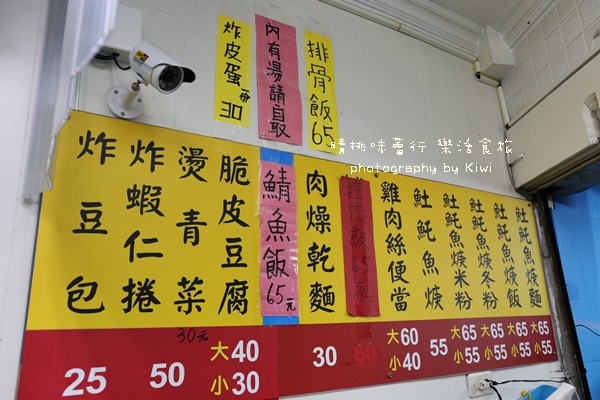 炸皮蛋一份30
內有湯請自取
排骨飯65
晴桃味蕾行 樂活食旅
photography by Kiwi
炸豆包
25
炸蝦仁捲
50
燙青菜
30元
脆皮豆腐
大40
小30
鯖魚飯65元
肉燥乾麵
30
控肉飯65元
60
雞肉絲便當
大60
小40
𩵚魠魚焿
55
𩵚魠魚焿米粉
大65
小55
𩵚魠魚焿冬粉
大65
小55
𩵚魠魚焿飯
大65
小55
𩵚魠魚焿麵
大65
小55